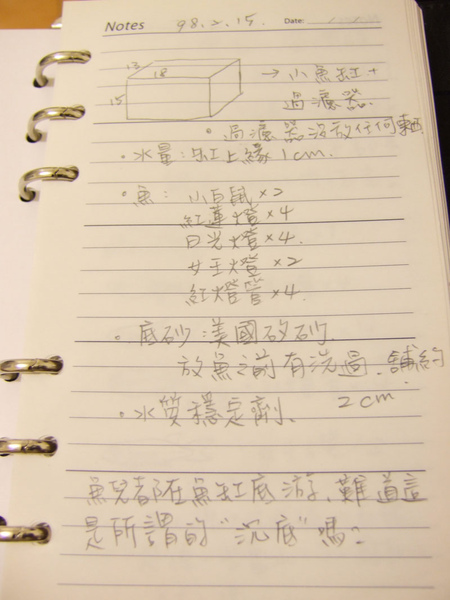 Notes 98.2.15. Date:
13
18
15
→ 小魚缸+
過濾器.
• 過濾器沒放任何東西
• 水量:缸上緣1cm.
• 魚: 小白鼠×2
紅蓮燈×4
日光燈×4.
女王燈×2
紅燈管×4.
• 底砂:美國矽砂.
放魚之前有洗過.舖約
2cm
• 水質穩定劑.
魚兒都在魚缸底游,難道這
是所謂的"沉底"嗎?